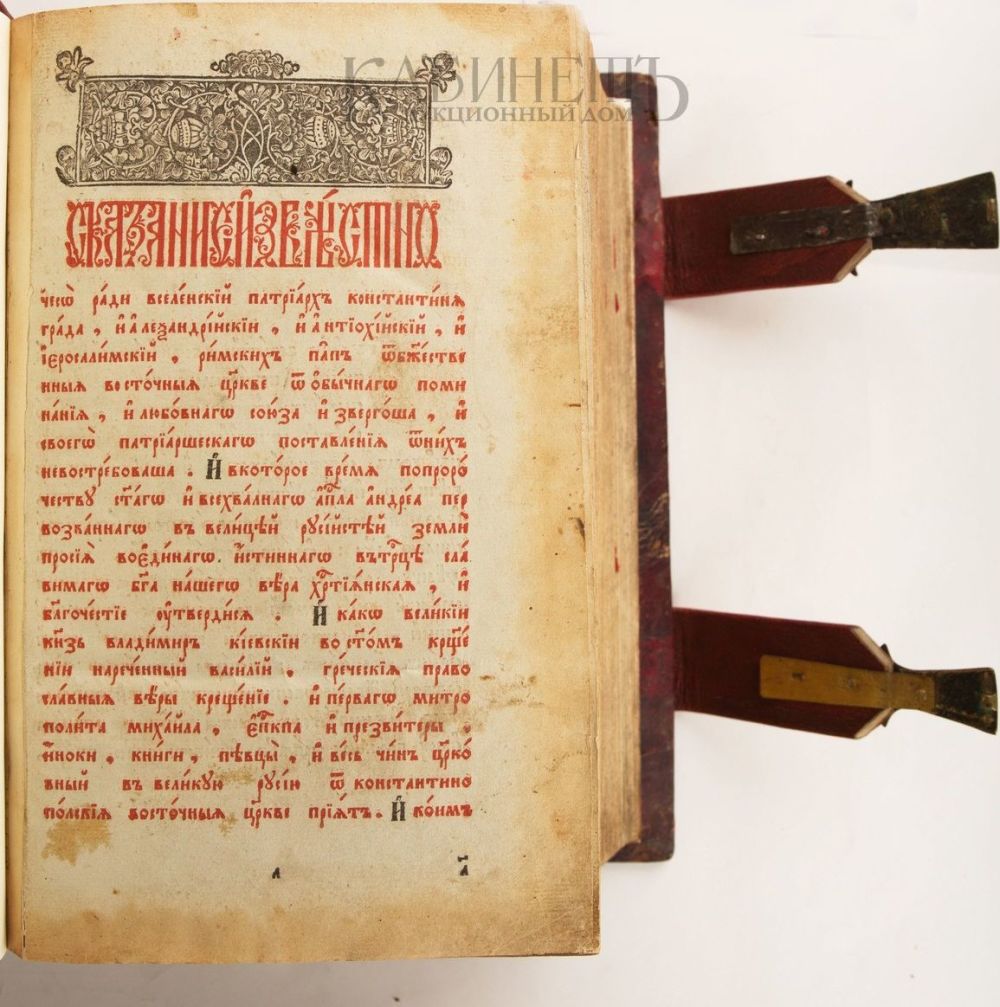 КАБИНЕТЪ
кционный дом
Сказание известно
чесѡ̀ ра́ди вселе́нскїй патрїа́рхъ константи́нѧ
гра́да , и҆ а҆леѯандрі́йскїи , и҆ а҆нтїохі́йскїй , и҆
і҆ерⷭ҇али́мскїй , ри́мскихъ па́пъ ѿбж҃е́стве
нныѧ восто́чныѧ цр҃кве ѿ ѻ҆бы́чнагѡ поми
на́нїѧ , и҆ любо́внагѡ сою́за и҆зверго́ша , и҆
своегѡ̀ патрїа́ршескагѡ поставле́нїѧ ѿни́хъ
невостре́боваша . И҆ вкото́рое вре́мѧ попроро́
честву ст҃а́гѡ и҆ всехва́лнагѡ а҆пⷭ҇ла а҆ндре́а пер
возва́ннагѡ въ вели́цѣй рꙋсі́йстѣй землѝ
просїѧ̀ воеди́нагѡ . и҆́стиннагѡ въ трⷪ҇цѣ сла́
вимагѡ бг҃а на́шегѡ вѣ́ра хрⷭ҇тїѧ́нскаѧ , и҆
бл҃гоче́стїе ᲂу҆тверди́сѧ . И҆ ка́кѡ вели́кїи
кн҃зь влади́мир кі́евскїи во ст҃о́мъ кр҃ще́
нїи нарече́нный васи́лїй . гре́ческїѧ право
сла́вныѧ вѣ́ры креще́нїе . и҆ пе́рвагѡ митро
поли́та миха́ила , є҆пⷭ҇кпа и҆ презви́теры .
и҆́ноки , кни́ги , пѣвцы̀ , и҆ ве́сь чи́нъ цр҃ко́
вный въ вели́кꙋю рꙋсі́ю ѿ константино
по́лскїѧ восто́чныѧ цр҃кве прїѧ́тъ . И҆ ко́имъ
л҃
а҃